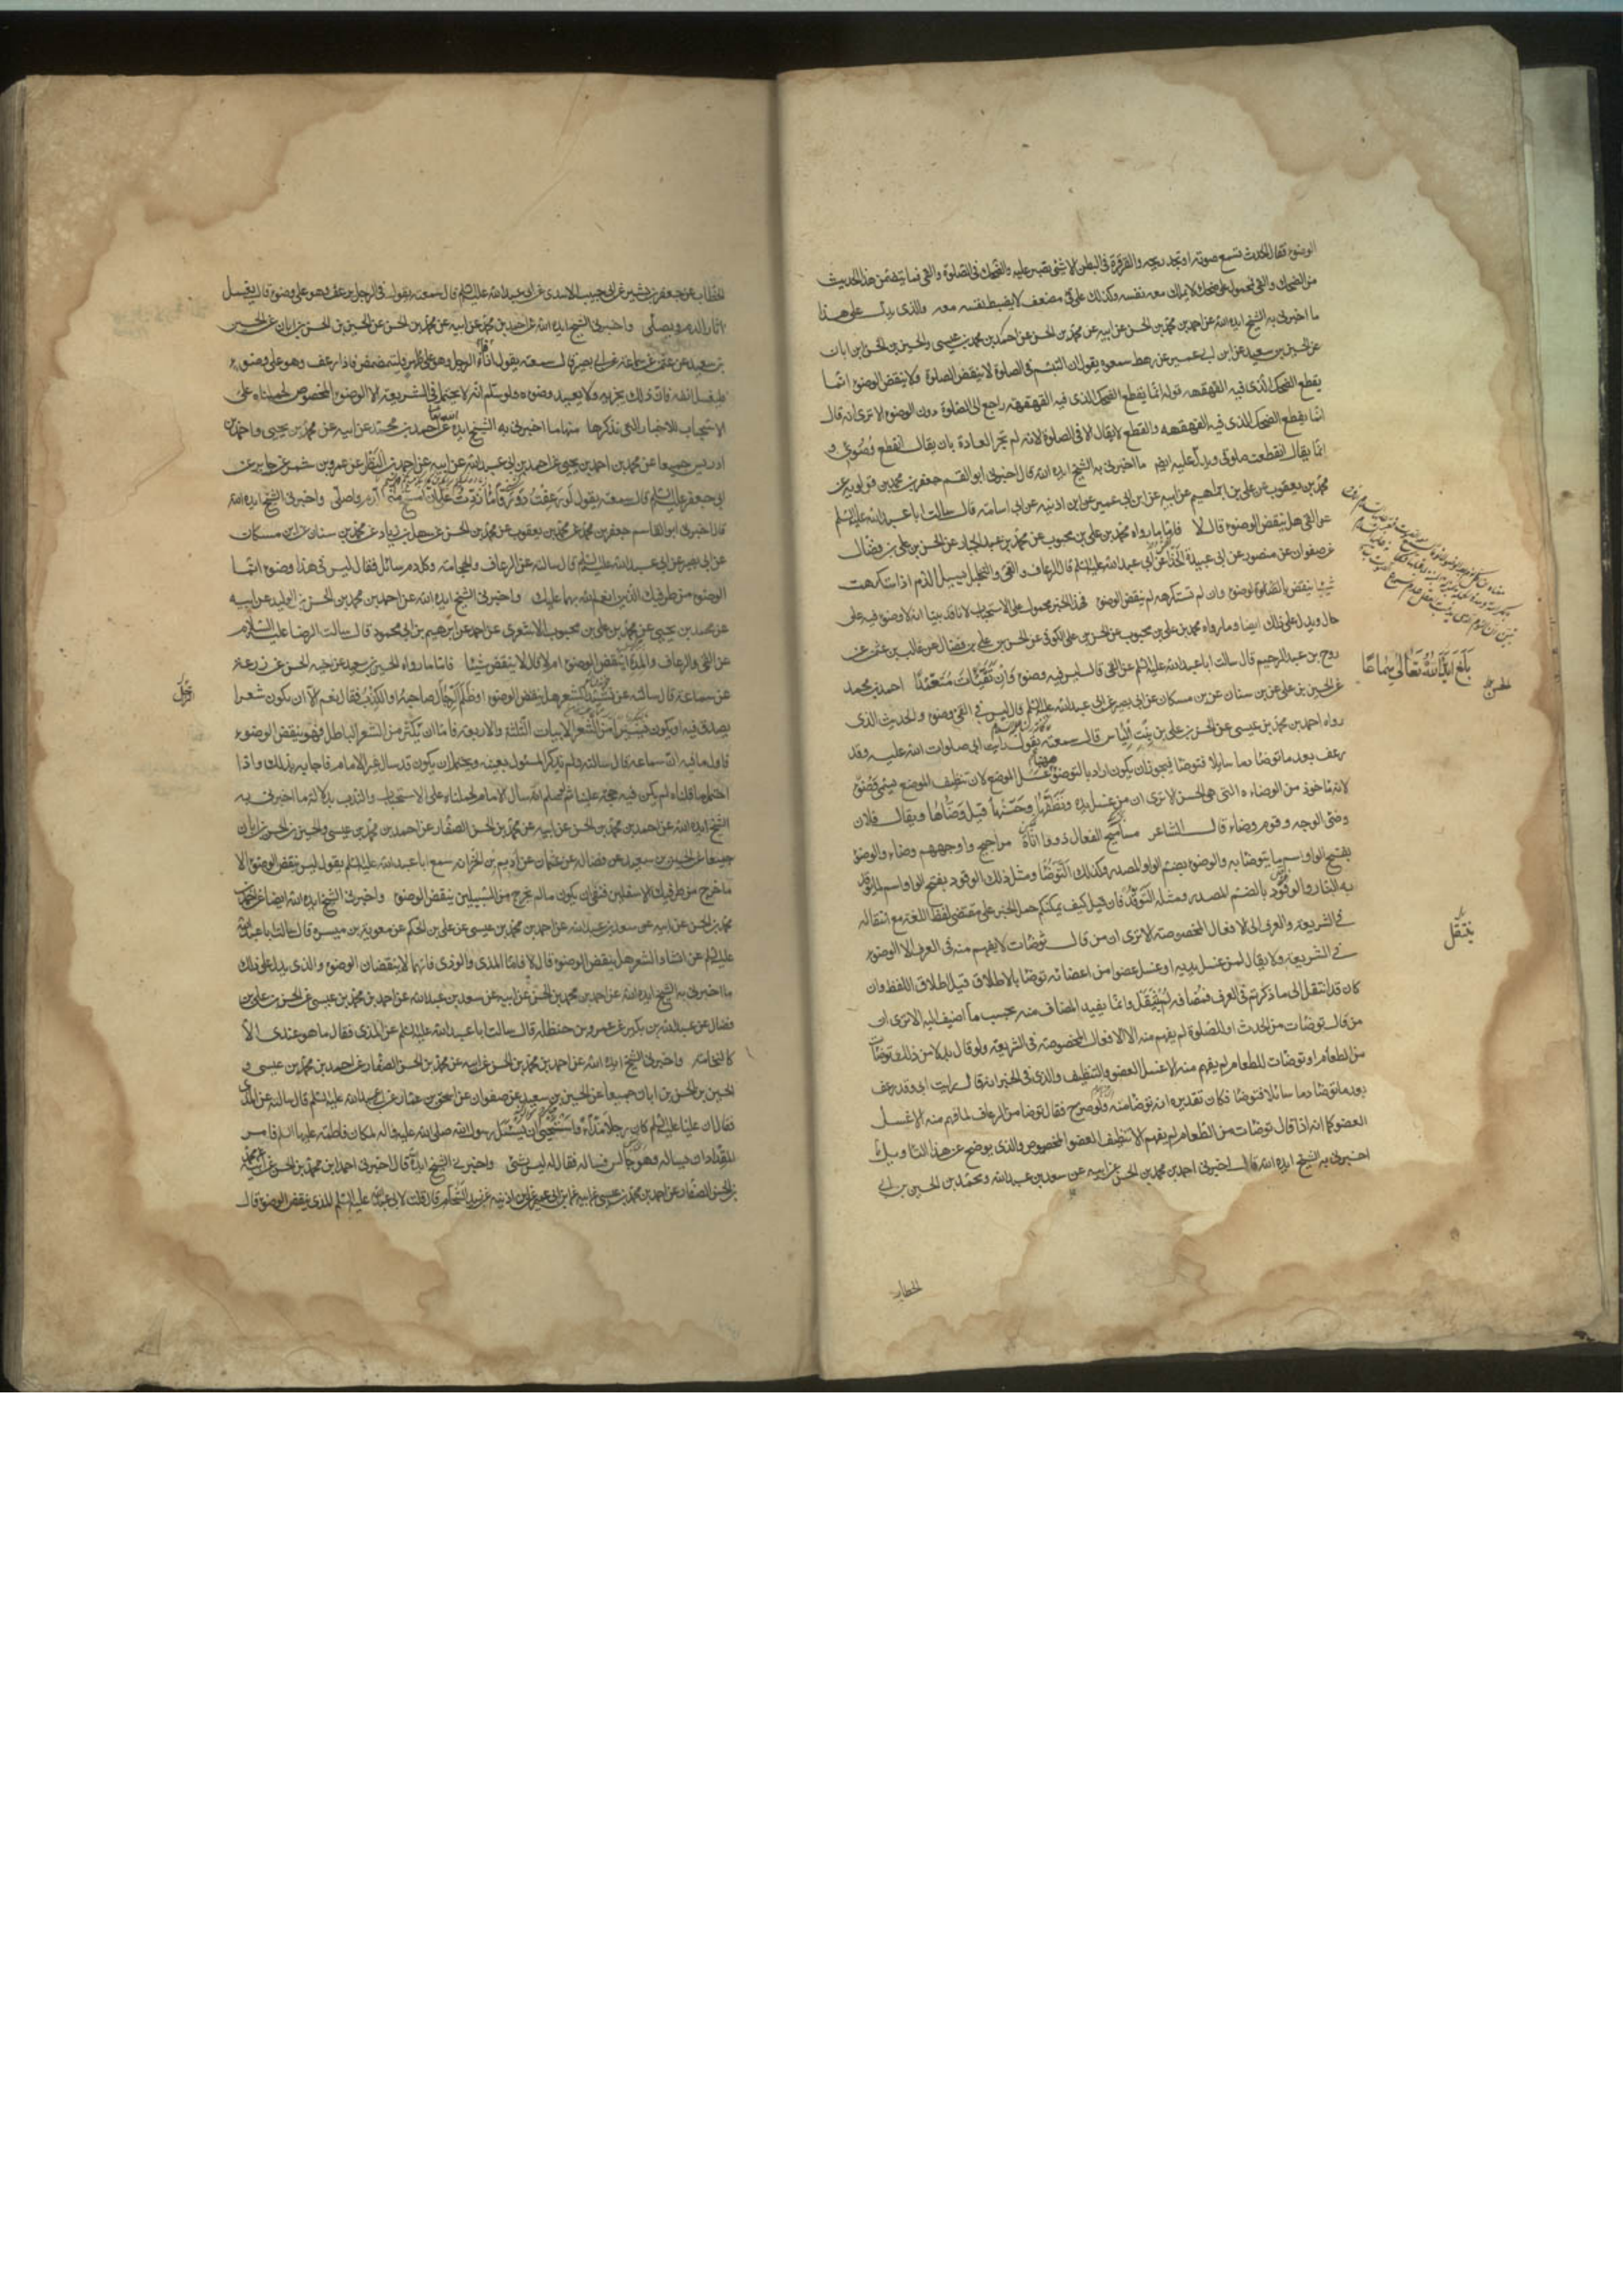 الوضوء فقال الحدث تسمع صوته او تجد ريحه والقرقرة في البطن الا شئ تصبر عليه والضحك في الصلوة والقئ فما يتضمن هذا الحديث
من الضحك والقئ فمحمول على ضحك لا يملك معه نفسه وكذلك على قئ مضعف لا يضبط نفسه معه والذي يدل على هذا
ما اخبرني به الشيخ ايده الله عن احمد بن محمد بن الحسن عن ابيه عن محمد بن الحسن عن احمد بن محمد بن عيسى والحسين بن الحسن ابن ابان
عن الحسين بن سعيد عن ابن ابي عمير عن رهط سمعوه يقول ان التبسم في الصلوة لا ينقض الصلوة ولا ينقض الوضوء انما
يقطع الضحك الذي فيه القهقهه قوله انما يقطع الضحك الذي فيه القهقهة راجع الى الصلوة دون الوضوء الا ترى انه قال
انما يقطع الضحك الذي فيه القهقهه والقطع لا يقال الا في الصلوة لانه لم تجر العادة بان يقال انقطع وضوئي و
انما يقال انقطعت صلوتي ويدل عليه ايضا ما اخبرني به الشيخ ايده الله قال اخبرني ابو القسم جعفر بن محمد بن قولويه عن
محمد بن يعقوب عن علي بن ابراهيم عن ابيه عن ابن ابي عمير عن ابن اذينه عن ابي اسامة قال سالت ابا عبد الله عليه السلم
عن القئ هل ينقض الوضوء قال لا فاما ما رواه محمد بن علي بن محبوب عن محمد بن عبد الجبار عن الحسن بن علي بن فضال
عن صفوان عن منصور عن ابي عبيدة الحذا عن ابي عبد الله عليه السلم قال الرعاف والقئ والتخليل يسيل الدم اذا استكرهت
شيئا ينقض الوضوء وان لم تستكرهه لم ينقض الوضوء فهذا الخبر محمول على الاستحباب لانا قد بينا انه لا وضوء فيه على
حال ويدل على ذلك ايضا وما رواه محمد بن علي بن محبوب عن الحسن بن علي الكوفي عن الحسن بن علي بن فضال عن غالب بن عثمن عن
روح بن عبد الرحيم قال سالت ابا عبد الله عليه السلم عن القئ قال ليس فيه وضوء وان تقيأت متعمدا احمد بن محمد
عن الحسين بن علي عن بن سنان عن بن مسكان عن ابي بصير عن ابي عبد الله عليه السلم قال ليس في القئ وضوء والحديث الذي
رواه احمد بن محمد بن عيسى عن الحسن بن علي بن بنت الياس قال سمعته يقول رايت ابي صلوات الله عليه وقد
رعف بعد ما توضأ دما سايلا فتوضأ فيجوز ان يكون اراد بالتوضؤ غسل الموضع لان تنظيف الموضع يسمى وضوء
لانه ماخوذ من الوضاءه التي هي الحسن الا ترى ان من غسل يده ونظفها وحسنها قيل وضأها ويقال فلان
وضئ الوجه وقوم وضاء قال الشاعر مساميح الفعال ذووا اناة مراجيح واوجههم وضاء والوضوء
بفتح الواو اسم ما يتوضأ به والوضوء بضم الواو المصدر وكذلك التوضأ ومثل ذلك الوقود بفتح الواو اسم لما يوقد
به النار والوقود بالضم المصدر ومثله التوقد فان قيل كيف يمكنكم حمل الخبر على مقتضى لفظ اللغة مع انتقاله
في الشريعة والعرف الى الافعال المخصوصة الا ترى ان من قال توضأت لا يفهم منه في العرف الا الوضوء
في الشريعة ولا يقال لمن غسل يديه او غسل عضوا من اعضائه توضأ بالاطلاق قيل اطلاق اللفظ وان
كان قد انتقل الى ما ذكرتم في العرف فمضافه لم ينتقل وانما يفيد المضاف منه بحسب ما اضيف اليه الا ترى ان
من قال توضأت من الحدث او للصلوة لم يفهم منه الا الافعال المخصوصة في الشريعة ولو قال بدلا من ذلك توضأت
من الطعام او توضأت للطعام لم يفهم منه الا غسل العضو والتنظيف والذي في الخبر انه قال رايت ابي وقد رعف
بعد ما توضأ دما سائلا فتوضأ فكان تقديره انه توضأ منه ولو صرح فقال توضأ من الرعاف لما فهم منه الا غسل
العضو كما انه اذا قال توضأت من الطعام لم يفهم الا تنظيف العضو المخصوص والذي يوضح عن هذا التاويل ما
اخبرني به الشيخ ايده الله قال اخبرني احمد بن محمد بن الحسن عن ابيه عن سعد بن عبد الله ومحمد بن الحسين بن ابي
الخطاب
بلغ ايده الله تعالى سماعا
ينتقل
الخطاب عن جعفر بن بشير عن ابي حبيب الاسدي عن ابي عبد الله عليه السلم قال سمعته يقول في الرجل يرعف وهو على وضوء قال يغسل
اثار الدم ويصلي واخبرني الشيخ ايده الله عن احمد بن محمد عن ابيه عن محمد بن الحسن عن الحسين بن الحسن بن ابان عن الحسين
بن سعيد عن عثمن عن سماعة عن ابي بصير قال سمعته يقول اذا قاء الرجل وهو على طهر فليتمضمض واذا رعف وهو على وضوء
فليغسل انفه فان ذلك يجزيه ولا يعيد وضوءه ولو سلم انه لا يحتمل في الشريعة الا الوضوء المخصوص لحملناه على
الاستحباب للاخبار التي نذكرها منها ما اخبرني به الشيخ ايده الله عن احمد بن محمد عن ابيه عن محمد بن يحيى واحمد بن
ادريس جميعا عن محمد بن احمد بن يحيى عن احمد بن ابي عبد الله عن ابيه عن احمد بن النضر عن عمرو بن شمر عن جابر عن
ابي جعفر عليه السلم قال سمعته يقول لو رعفت دورقا ما زدت على ان امسح مني الدم واصلي واخبرني الشيخ ايده الله
قال اخبرني ابو القاسم جعفر بن محمد عن محمد بن يعقوب عن محمد بن الحسن عن سهل بن زياد عن محمد بن سنان عن ابن مسكان
عن ابي بصير عن ابي عبد الله عليه السلم قال سالته عن الرعاف والحجامة وكل دم سائل فقال ليس في هذا وضوء انما
الوضوء من طرفيك الذين انعم الله بهما عليك واخبرني الشيخ ايده الله عن احمد بن محمد بن الحسن بن الوليد عن ابيه
عن محمد بن يحيى عن محمد بن علي بن محبوب الاشعري عن احمد عن ابرهيم بن ابي محمود قال سالت الرضا عليه السلام
عن القئ والرعاف والمدة اينقض الوضوء ام لا قال لا ينقض شيئا فاما ما رواه الحسين بن سعيد عن اخيه الحسن عن زرعة
عن سماعة قال سالته عن نشيد الشعر هل ينقض الوضوء او ظلم الرجل صاحبه او الكذب فقال نعم الا ان يكون شعرا
يصدق فيه او يكون يسيرا من الشعر الابيات الثلثة والاربعة فاما ان يكثر من الشعر الباطل فهو ينقض الوضوء
فاول ما فيه ان سماعة قال سالته ولم يذكر المسئول بعينه ويحتمل ان يكون قد سال غير الامام فاجابه بذلك واذا
احتمل ما قلناه لم يكن فيه حجة علينا ثم لو سلم انه سال الامام لحملناه على الاستحباب والندب بدلالة ما اخبرني به
الشيخ ايده الله عن احمد بن محمد بن الحسن عن ابيه عن محمد بن الحسن الصفار عن احمد بن محمد بن عيسى والحسين بن الحسن بن ابان
جميعا عن الحسين بن سعيد عن فضالة عن عثمان عن اديم بن الحر انه سمع ابا عبد الله عليه السلم يقول ليس ينقض الوضوء الا
ما خرج من طرفيك الاسفلين فنفى ان يكون ما لم يخرج من السبيلين ينقض الوضوء واخبرني الشيخ ايده الله ايضا عن احمد بن
محمد بن الحسن عن ابيه عن سعد بن عبد الله عن احمد بن محمد بن عيسى عن علي بن الحكم عن معوية بن ميسرة قال سالت ابا عبد الله
عليه السلم عن انشاد الشعر هل ينقض الوضوء قال لا فاما المذي والوذي فانهما لا ينقضان الوضوء والذي يدل على ذلك
ما اخبرني به الشيخ ايده الله عن احمد بن محمد بن الحسن عن ابيه عن سعد بن عبد الله عن احمد بن محمد بن عيسى عن الحسن بن علي بن
فضال عن عبد الله بن بكير عن عمرو بن حنظلة قال سالت ابا عبد الله عليه السلم عن المذي فقال ما هو عندي الا
كالنخامة واخبرني الشيخ ايده الله عن احمد بن محمد بن الحسن عن ابيه عن محمد بن الحسن الصفار عن احمد بن محمد بن عيسى و
الحسين بن الحسن بن ابان جميعا عن الحسين بن سعيد عن صفوان عن اسحق بن عمار عن ابي عبد الله عليه السلم قال سالته عن المذي
فقال ان عليا عليه السلم كان رجلا مذاء واستحيى ان يسئل رسول الله صلى الله عليه واله لمكان فاطمة عليها السلام فامر
المقداد ان يساله وهو جالس فساله فقال له ليس بشئ واخبرني الشيخ ايده الله قال اخبرني احمد بن محمد بن الحسن عن ابيه عن محمد
بن الحسن الصفار عن احمد بن محمد بن عيسى عن ابيه عن ابن ابي عمير عن ابن اذينه عن زيد الشحام قال قلت لابي عبد الله عليه السلم المذي ينقض الوضوء قال